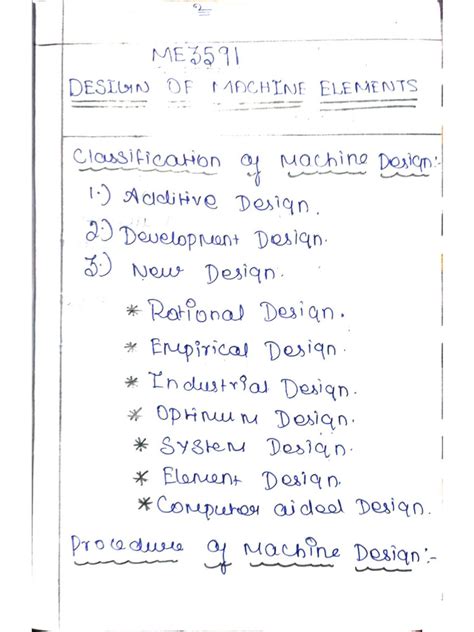 ME3591
DESIGN OF MACHINE ELEMENTS
Classification of Machine Design:-
1.) Additive Design.
2.) Development Design.
3.) New Design.
* Rational Design.
* Empirical Design.
* Industrial Design.
* Optimum Design.
* System Design.
* Element Design.
* Computer aided Design.
Procedure of Machine Design:-